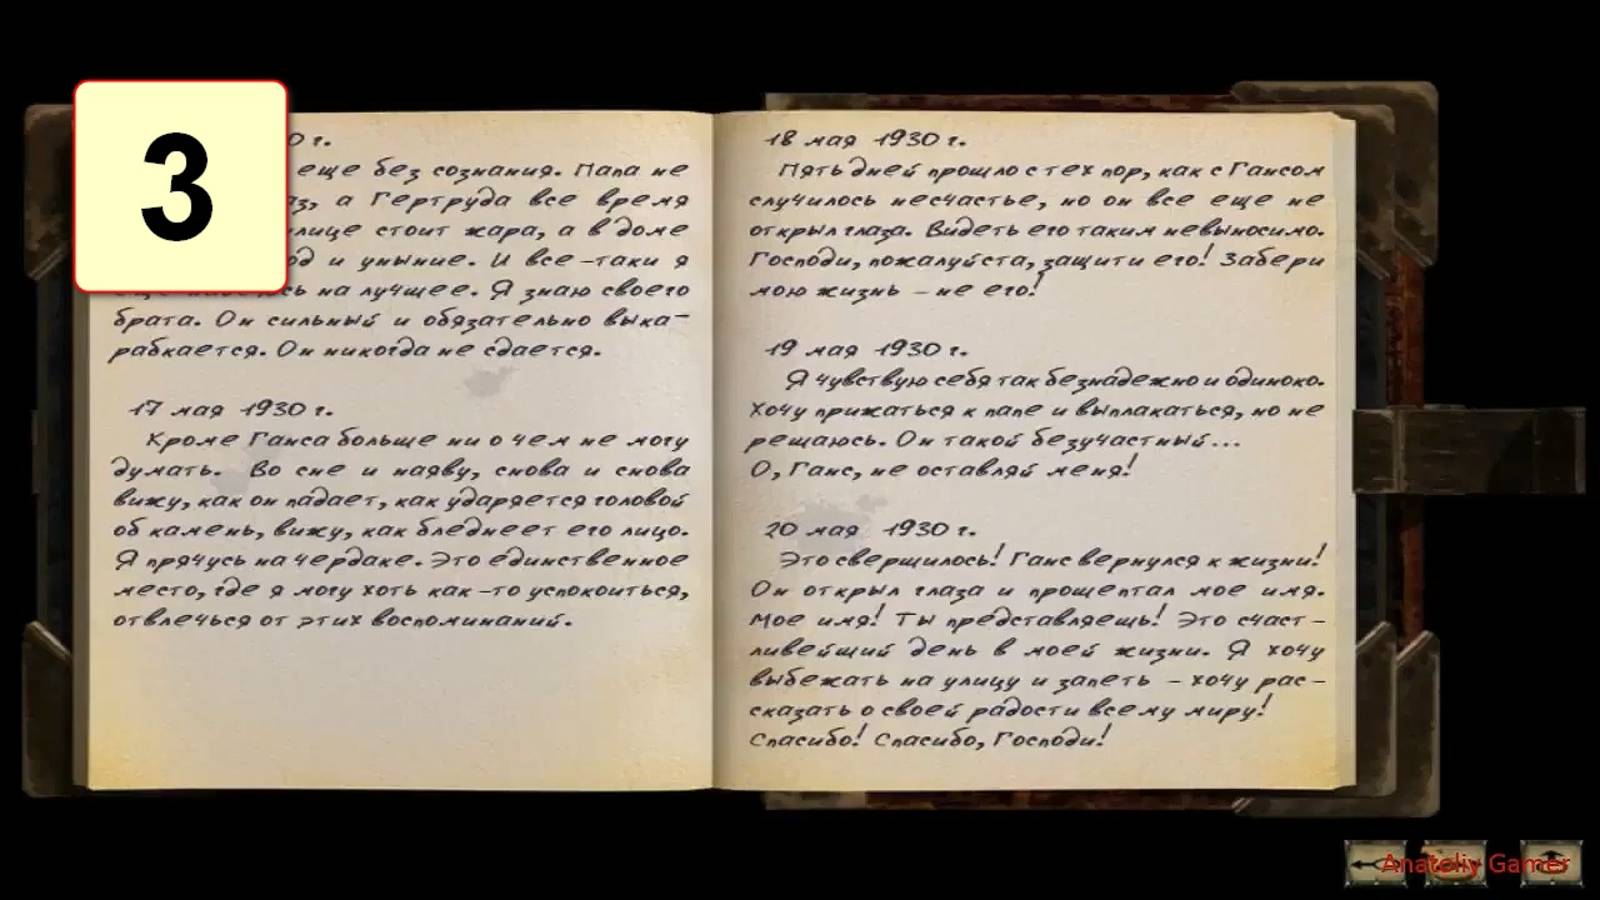 3
0 г.
еще без сознания. Папа не
а Гертруда все время
стоит жара, а в доме
и уныние. И все-таки я
на лучшее. Я знаю своего
брата. Он сильный и обязательно выка-
рабкается. Он никогда не сдается.
17 мая 1930 г.
Кроме Ганса больше ни о чем не могу
думать. Во сне и наяву, снова и снова
вижу, как он падает, как ударяется головой
об камень, вижу, как бледнеет его лицо.
Я прячусь на чердаке. Это единственное
место, где я могу хоть как-то успокоиться,
отвлечься от этих воспоминаний.
18 мая 1930 г.
Пять дней прошло с тех пор, как с Гансом
случилось несчастье, но он все еще не
открыл глаза. Видеть его таким невыносимо.
Господи, пожалуйста, защити его! Забери
мою жизнь - не его!
19 мая 1930 г.
Я чувствую себя так безнадежно и одиноко.
Хочу прижаться к папе и выплакаться, но не
решаюсь. Он такой безучастный...
О, Ганс, не оставляй меня!
20 мая 1930 г.
Это свершилось! Ганс вернулся к жизни!
Он открыл глаза и прошептал мое имя.
Мое имя! Ты представляешь! Это счаст-
ливейший день в моей жизни. Я хочу
выбежать на улицу и запеть - хочу рас-
сказать о своей радости всему миру!
Спасибо! Спасибо, Господи!
Anatoliy Gamer